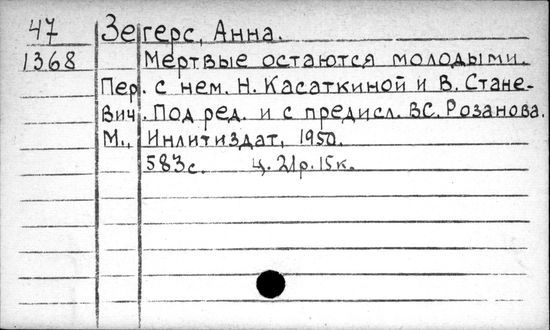 47 Зегерс, Анна.
1368 Мертвые остаются молодыми.
Пер. с нем. Н. Касаткиной и В. Стане-
вич. Под ред. и с предисл. ВС. Розанова.
М., Инлитиздат, 1950.
583с. ц. 21р. 15к.